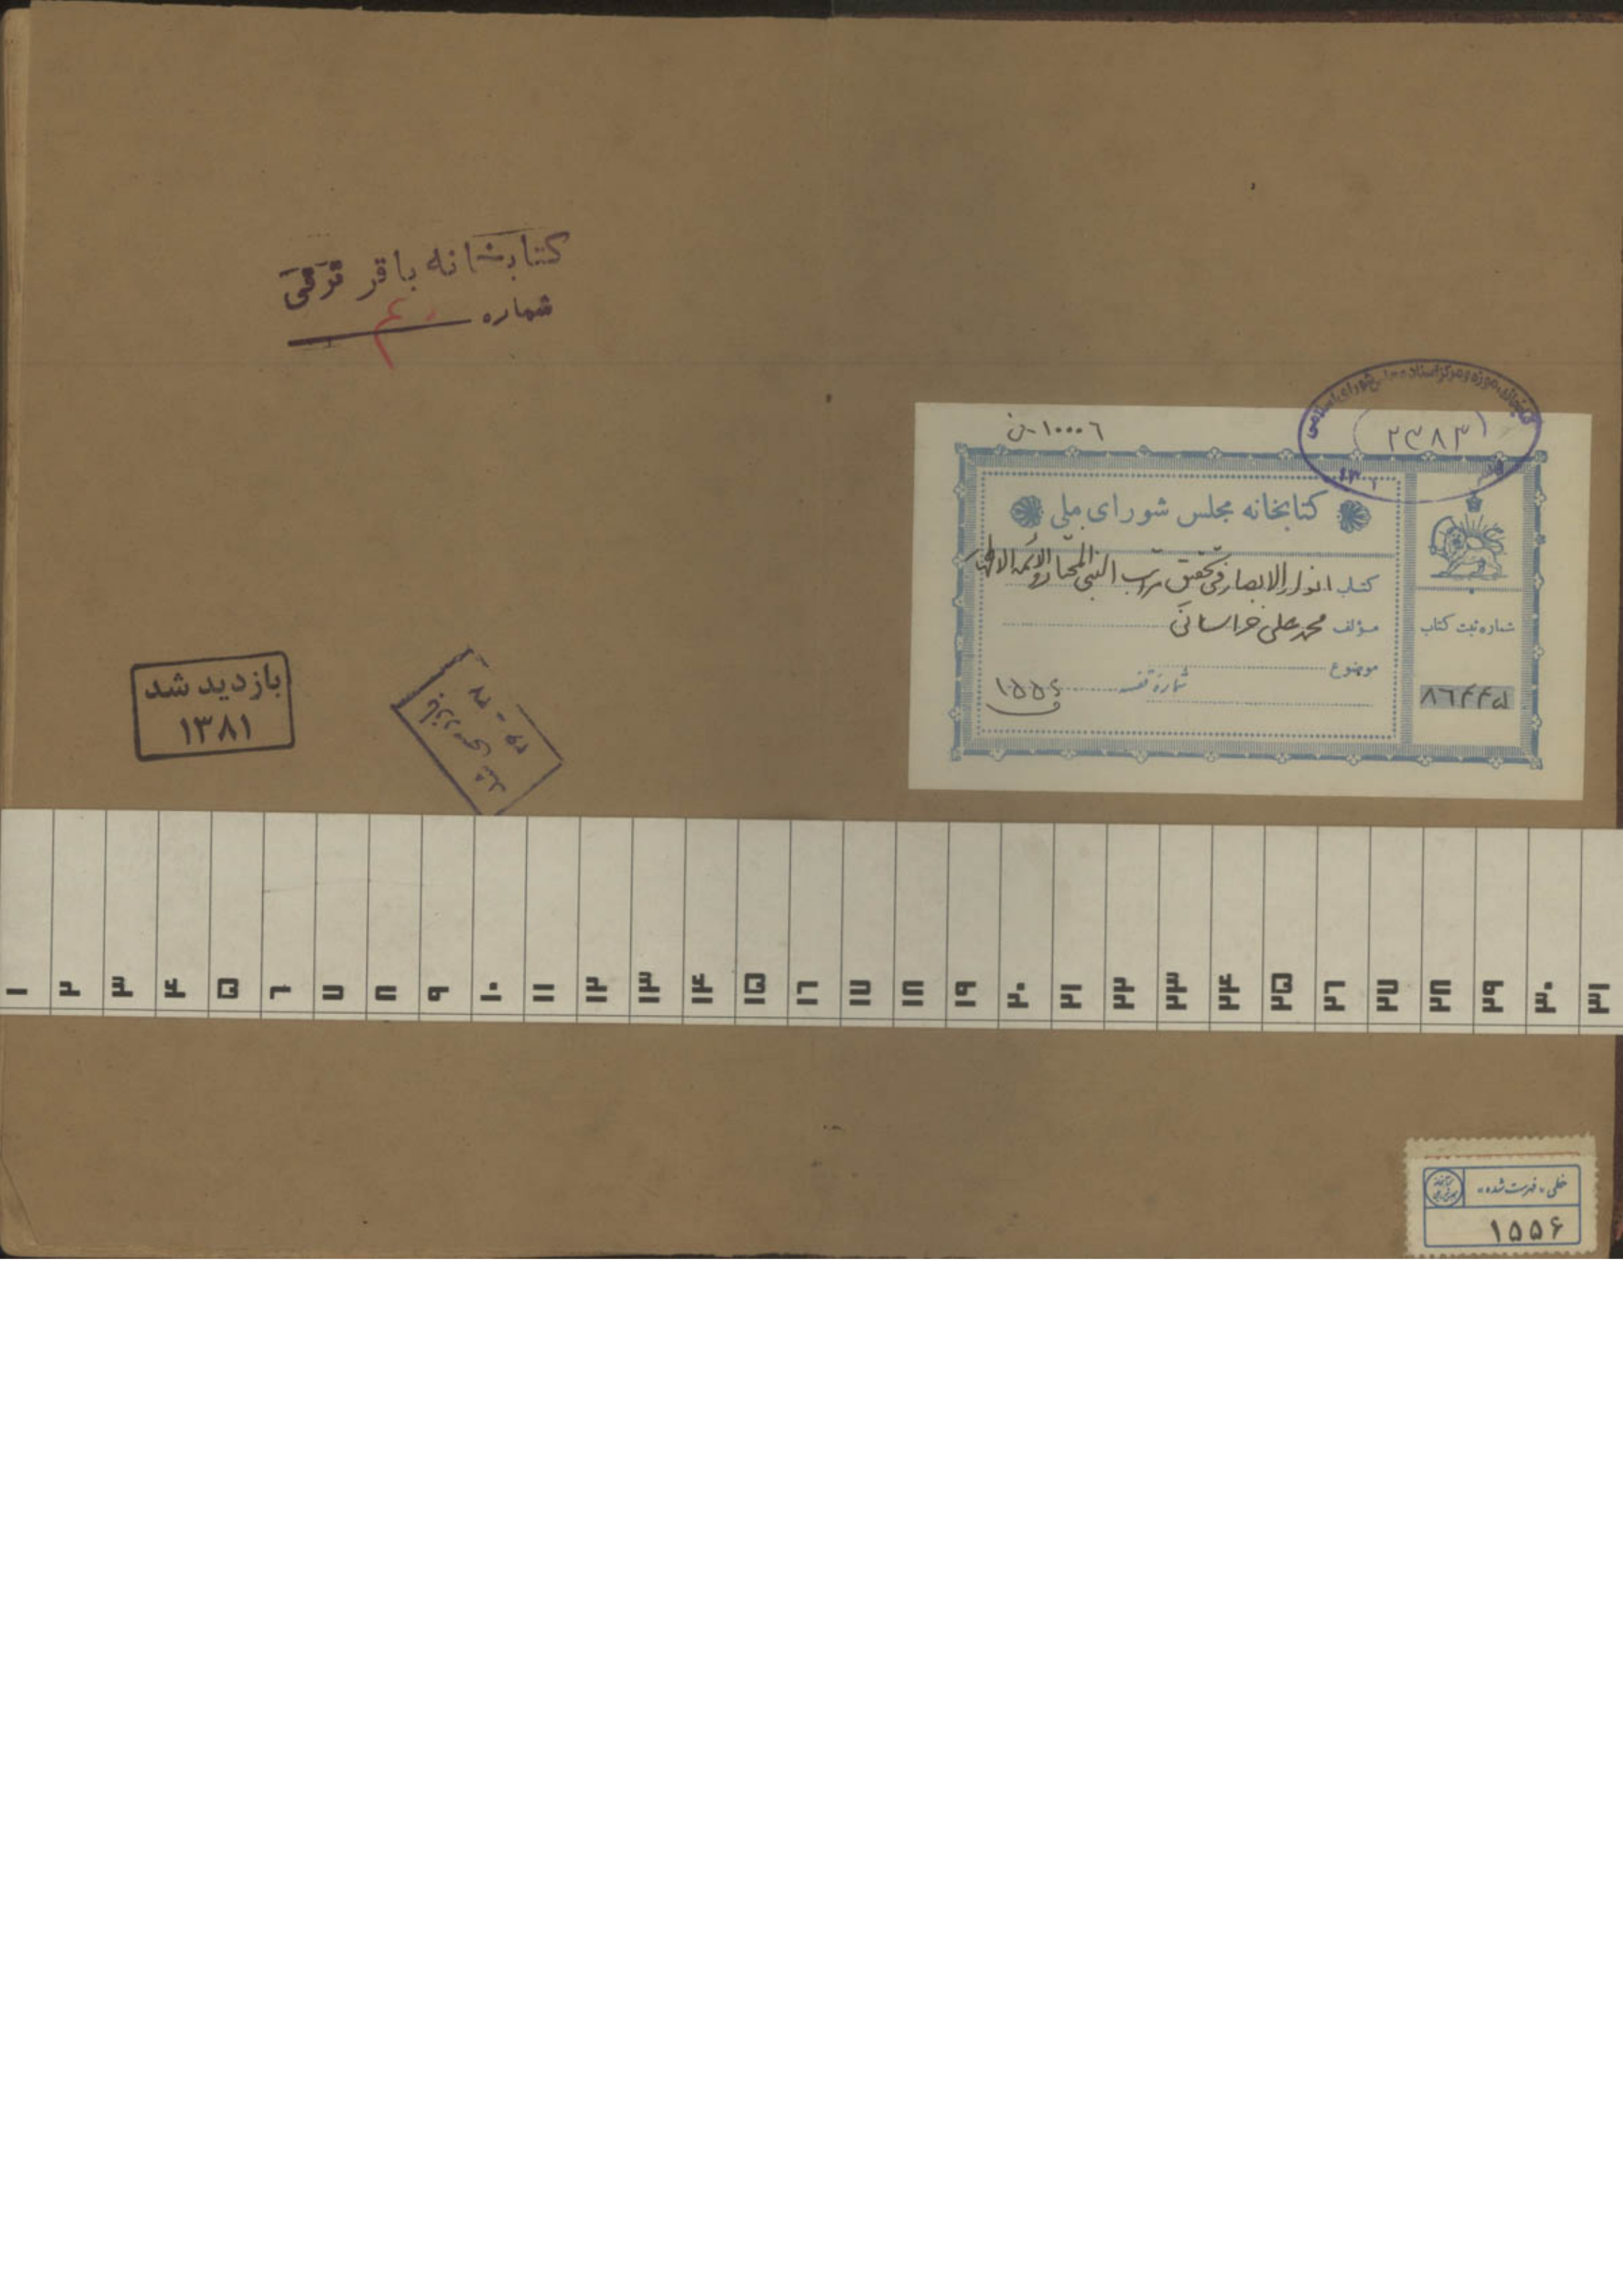 کتابخانه باقر ترقی
شماره ۴۰
بازدید شد
۱۳۸۱
۱۰۰۰۶-ن
کتابخانه، موزه و مرکز اسناد مجلس شورای اسلامی
۲۳۸۳۱
کتابخانه مجلس شورای ملی
کتاب انوار الابصار فی تحقیق مراتب النبی المختار و الائمه الاطهار
مؤلف محمد علی خراسانی
موضوع
شماره قفسه ۱۵۵۶
شماره ثبت کتاب
۸۶۴۴۵
۱ ۲ ۳ ۴ ۵ ۶ ۷ ۸ ۹ ۱۰ ۱۱ ۱۲ ۱۳ ۱۴ ۱۵ ۱۶ ۱۷ ۱۸ ۱۹ ۲۰ ۲۱ ۲۲ ۲۳ ۲۴ ۲۵ ۲۶ ۲۷ ۲۸ ۲۹ ۳۰ ۳۱
خطی «فهرست شده»
۱۵۵۶